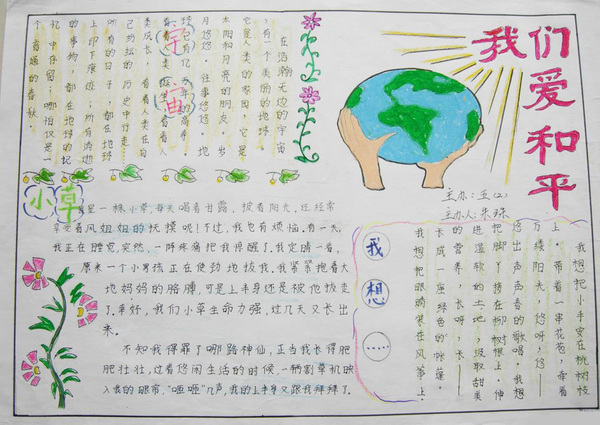 我们
爱
和
平
主办：五(2)
主办人：朱珠
宇宙
在浩瀚无边的宇宙
有一个美丽的地球。
它是人类的家园，它是
太阳和月亮的朋友。岁
月悠悠，往事悠悠，地
看着人类诞生，看着人
类成长，看着人类在自
所有的日子，都在地球
上印下痕迹；所有消逝
的事物，都在地球的记
忆中停留；哪怕仅是一
个普通的春秋。
小草
我是一棵小草，每天喝着甘露，披着阳光，还经常
享受着风姐姐的抚摸呢！不过，我也有烦恼。有一天，
我正在睡觉，突然，一阵疼痛把我惊醒了。我定睛一看，
原来一个小男孩正在使劲地拔我。我紧紧抱着大
地妈妈的胳膊，可是上半身还是被他拔走
了。幸好，我们小草生命力强，过几天又长出
来。
不知我得罪了哪路神仙，正当我长得肥
肥壮壮，过着悠闲生活的时候，一辆割草机映
入我的眼帘，“咂咂”几声，我的上半身又跟我拜拜了。
我想……
我想把小手安在桃树枝
上，带着一串花苞，牵着
万缕阳光，悠呀，悠——
悠出声声春的歌唱。我想
把脚丫接在柳树根上，伸
进湿软的土地，汲取甜美
的营养，长呀，长——
长成一座绿色的帐篷。
我想把眼睛装在风筝上。